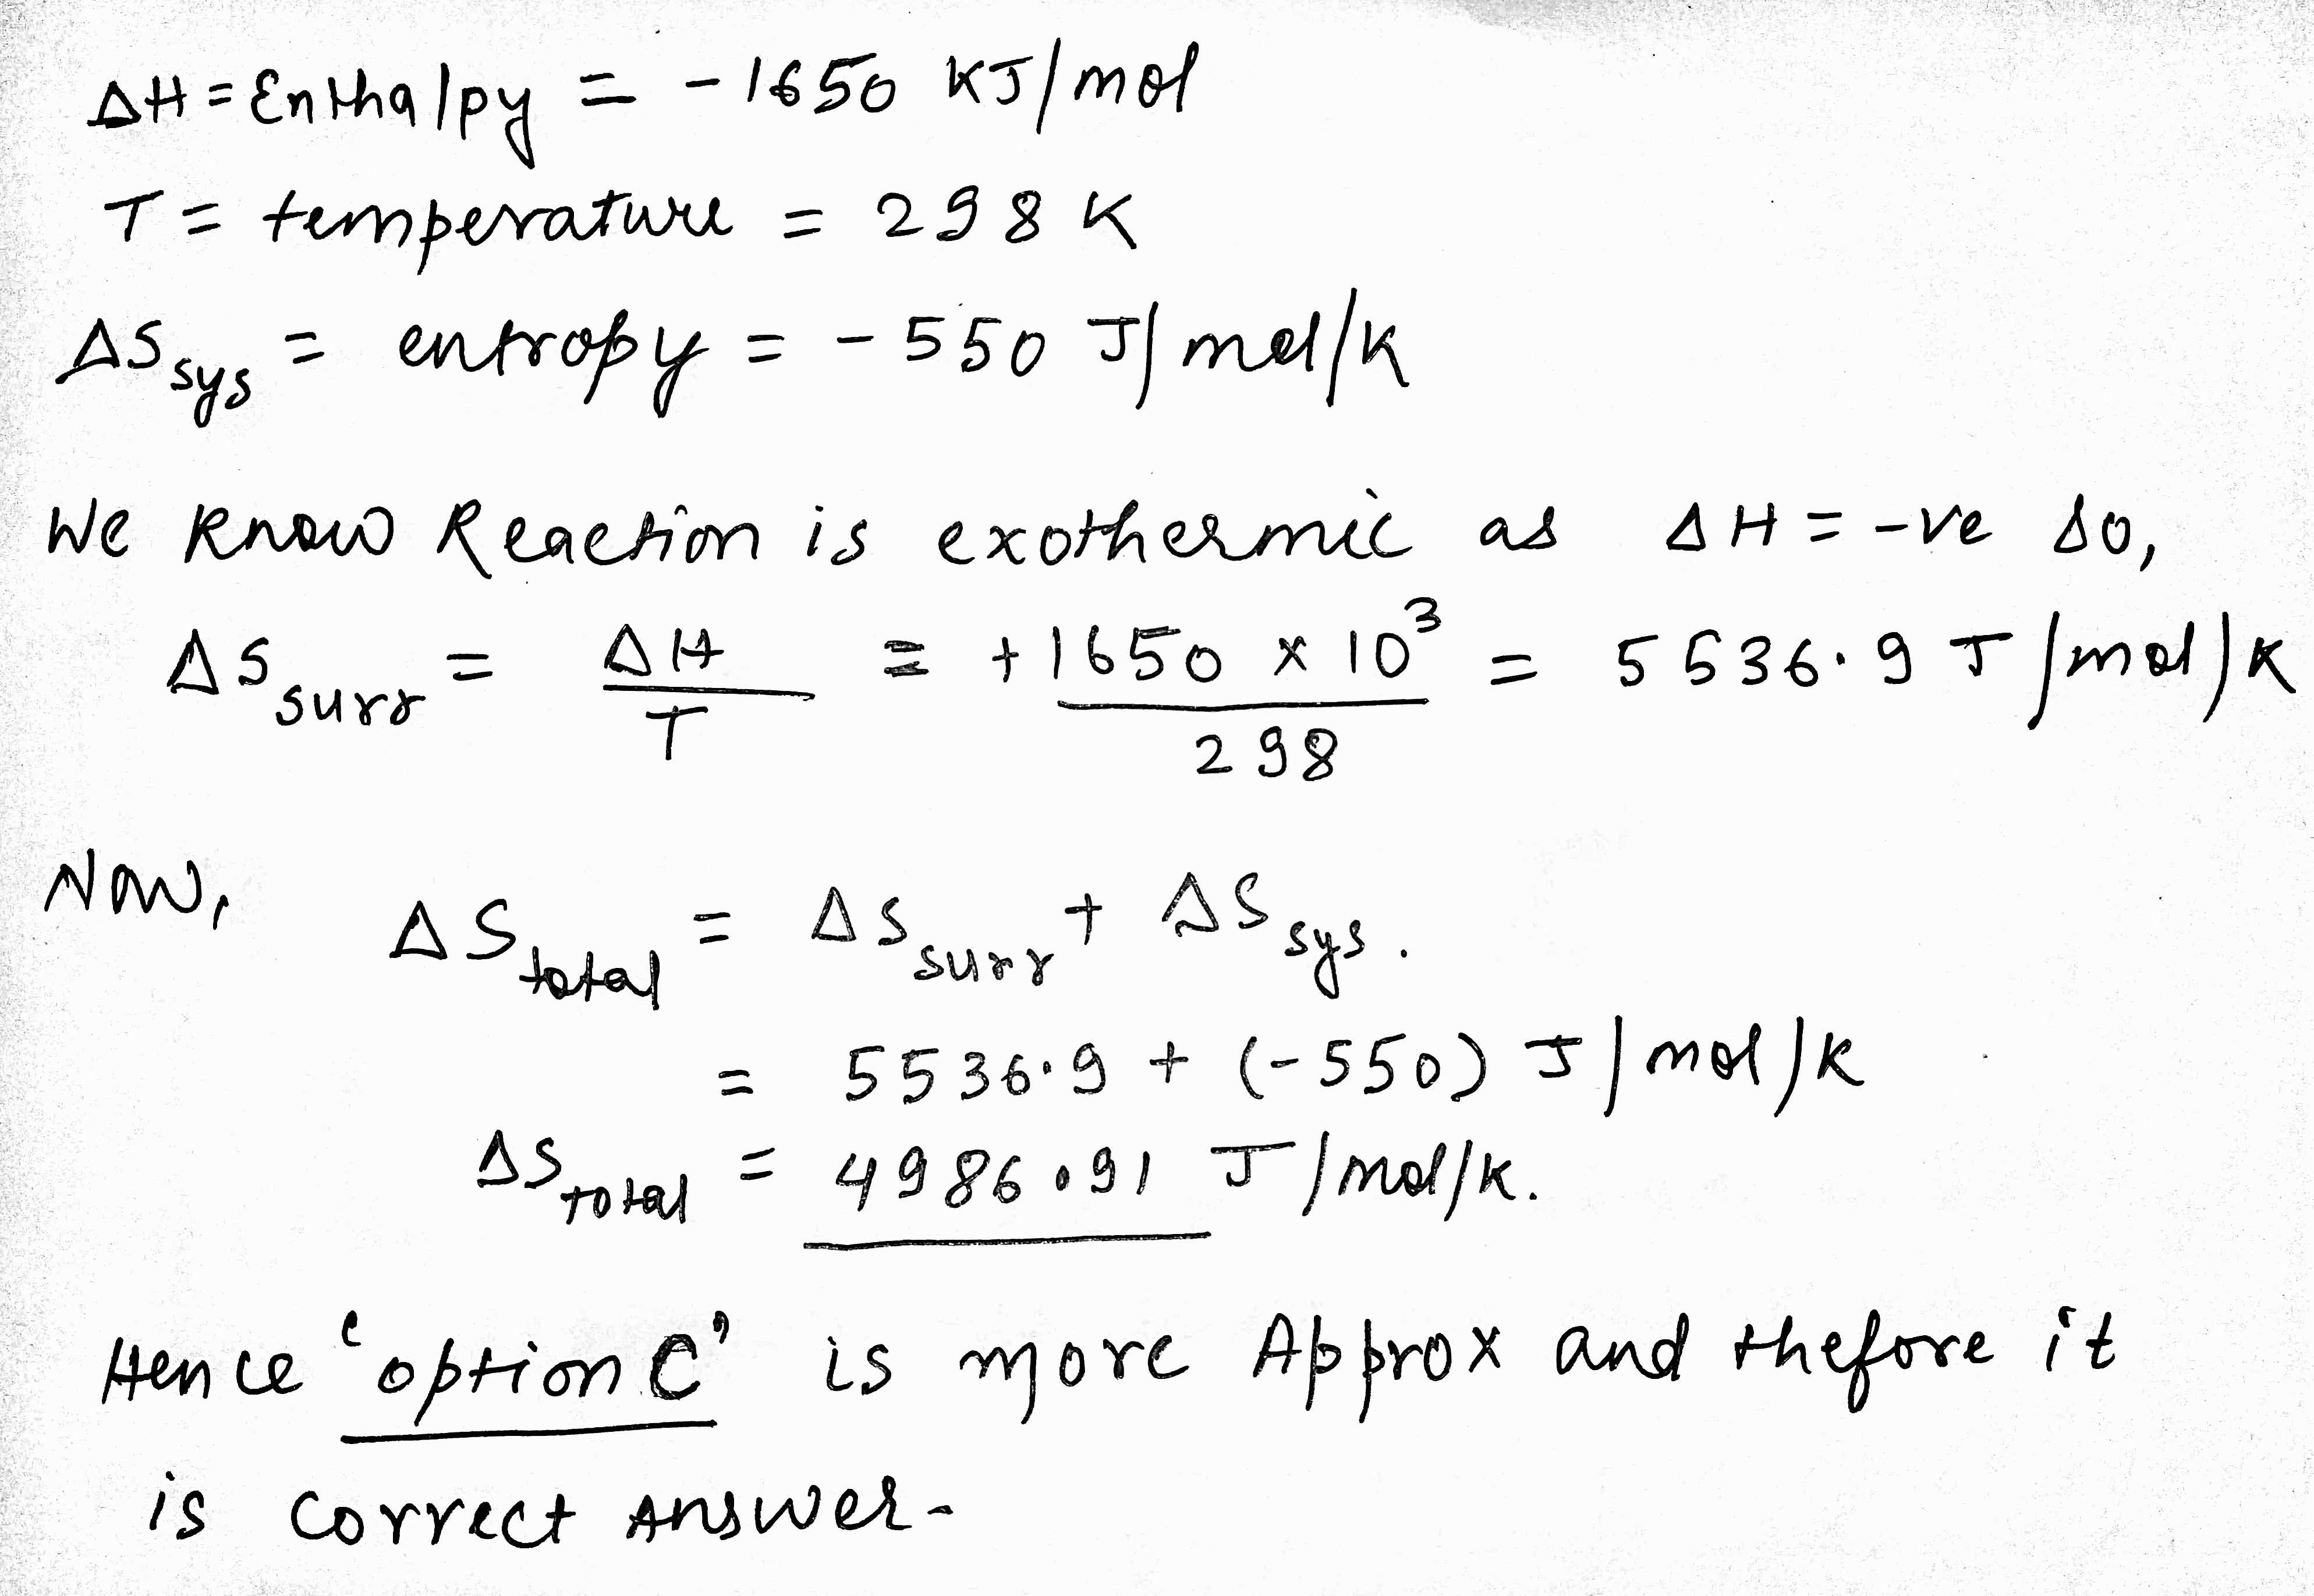 ΔH = Enthalpy = -1650 KJ/mol
T = temperature = 298 K
ΔS sys = entropy = -550 J/mol/K
We know Reaction is exothermic as ΔH = -ve so,
ΔS surr = ΔH/T = +1650 x 10³/298 = 5536.9 J/mol/K
Now, ΔS total = ΔS surr + ΔS sys.
= 5536.9 + (-550) J/mol/K
ΔS total = 4986.91 J/mol/K.
Hence 'option C' is more Approx and thefore it
is correct Answer-